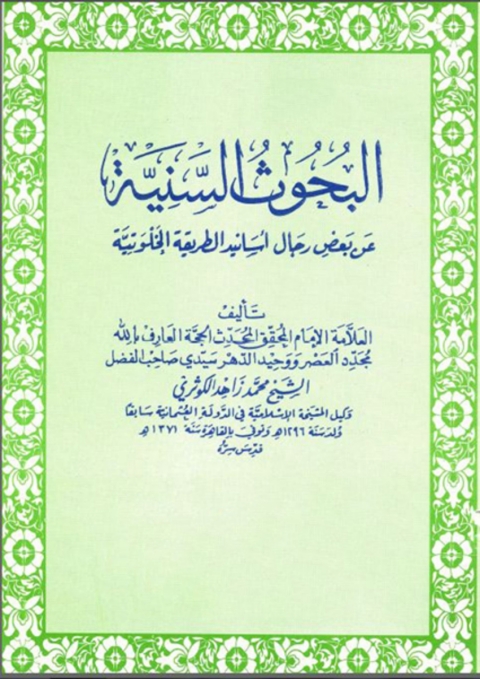 البُحُوثُ السَّنِيَّة
عَن بَعضِ رجَال أسَانيد الطريقة الخَلوَتيَّة
تأليف
العلاَّمة الإمَام المحقِّق المحَدِّث الحجَّة العَارف بالله
مُجَدِّد العَصْر وَوَحيد الدَّهْر سَيِّدي صَاحبُ الفَضل
الشيْخ محمَّد زَاهِد الكوثَري
وَكيل المشيَخة الإسْلاميَّة في الدَّولَة العُثمانيَّة سَابقًا
وُلدَ سَنَة ١٢٩٦هـ وَتوفيَ بالقاهِرَة سَنَة ١٣٧١هـ
قدّسَ سِرُّهُ